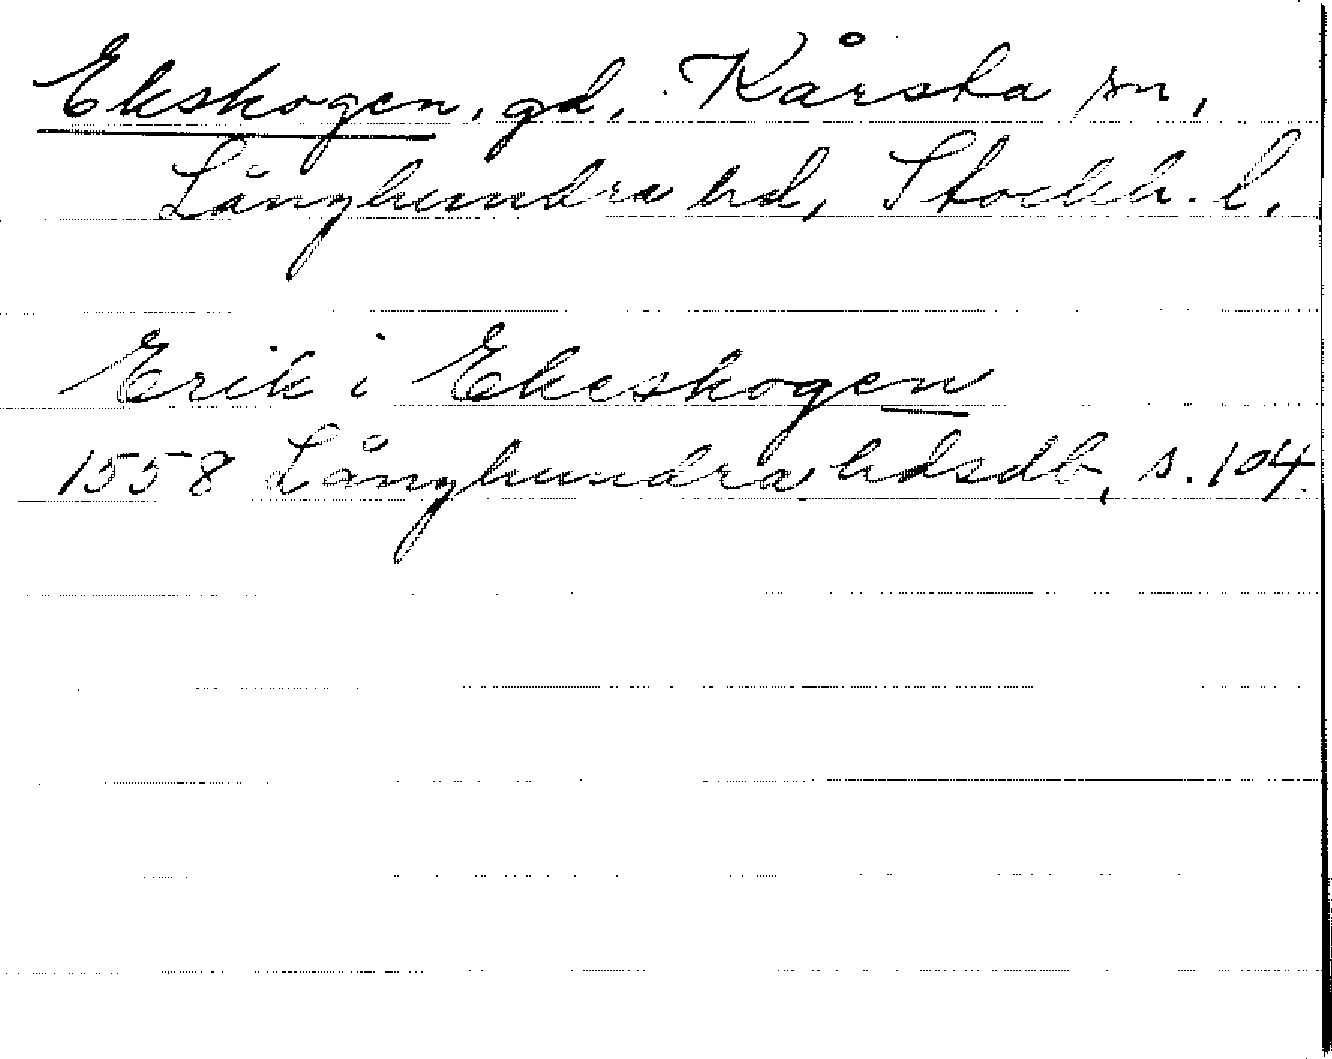 Ekskogen, gd, Kårsta sn,
Långhundra hd, Stockh. l.
Erik i Ekeskogen
1558 Långhundra hdsdb, s. 104.